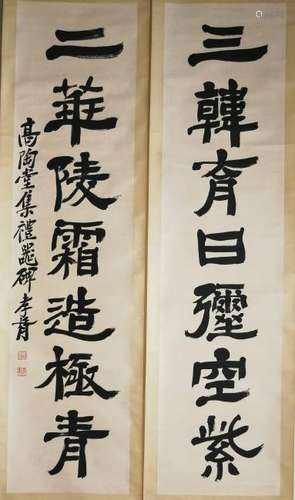 三韓育日彌空紫
二華陵霜造極青
高陶堂集禮器碑孝胥